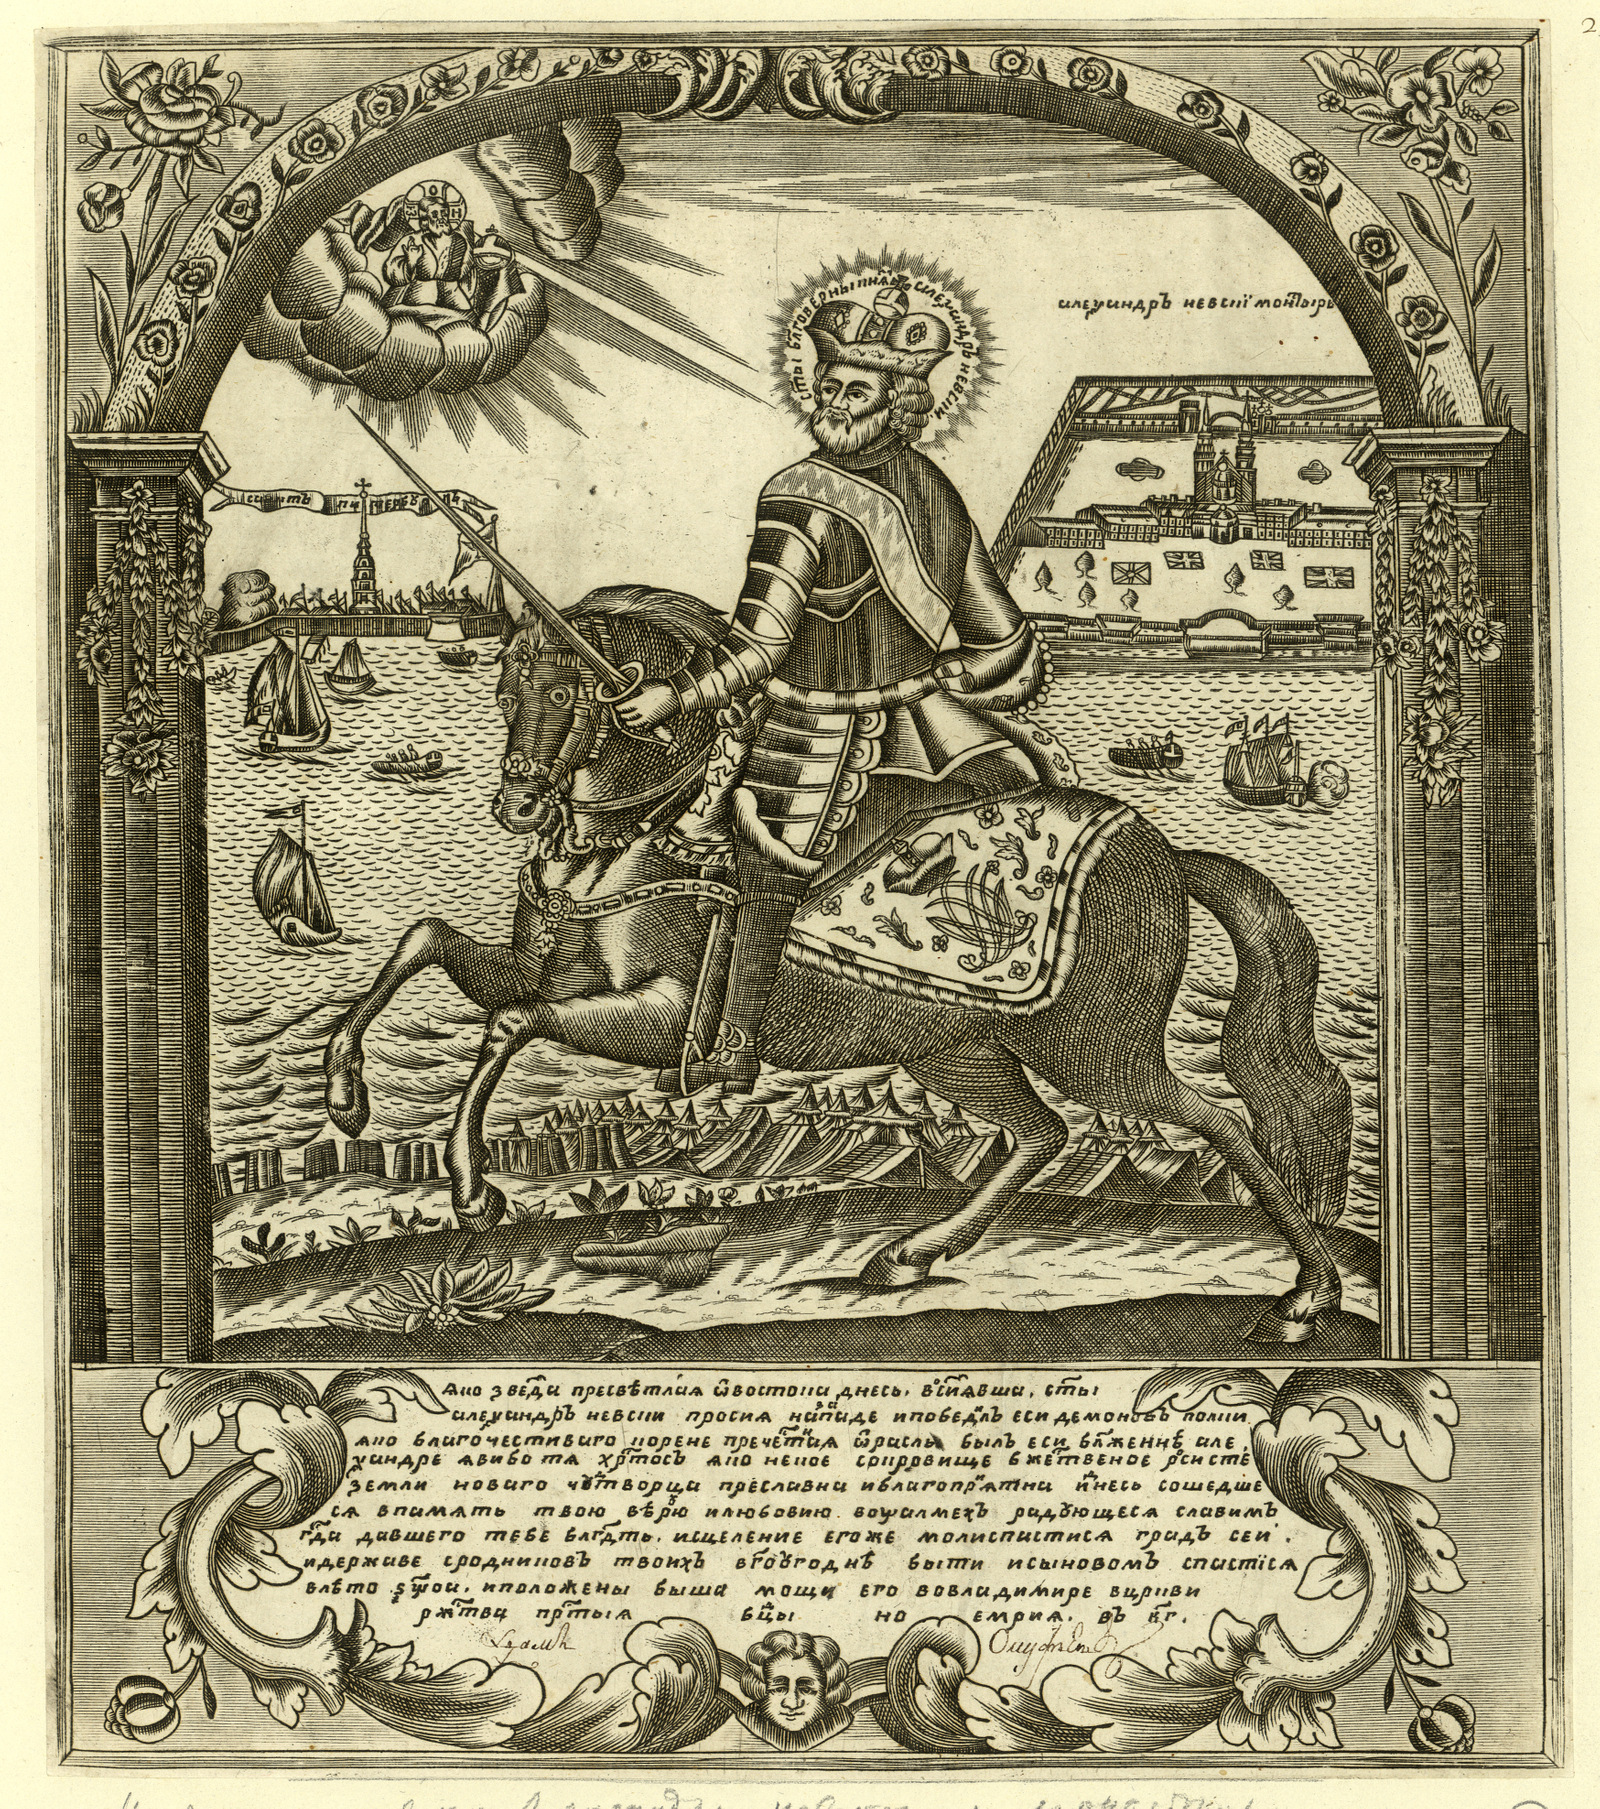 сты блговерны кнѧзь алеѯандръ невскии
алеѯандръ невскиї монтырь
санктъ питербурхъ
Ѧко звезда пресвѣтлаѧ ѿвостока днесь, восиѧвша, сты
алеѯандръ невскии просиѧ назападе ипобедилъ еси демоновъ полки
ѧко благочестиваго корене пречестнаѧ ѿрасль былъ еси блженне але
ѯандре ѧвибо тѧ хртосъ ѧко некое сокровище бжественое росисте
земли новаго чюдтворца преславна иблагоприѧтна
сѧ впамѧть твою вѣрю илюбовию. воѱалмехъ радующесѧ славимъ
гда давшего тебе блгдть. исцеление егоже молиспастисѧ градъ сеи.
идержаве сродниковъ твоихъ бгоугоднѣ быти исыновомъ спастисѧ
влѣто иположены быша мощи его вовладимире вцркви
ржтва пртыѧ бцы но емриѧ. въ кг.